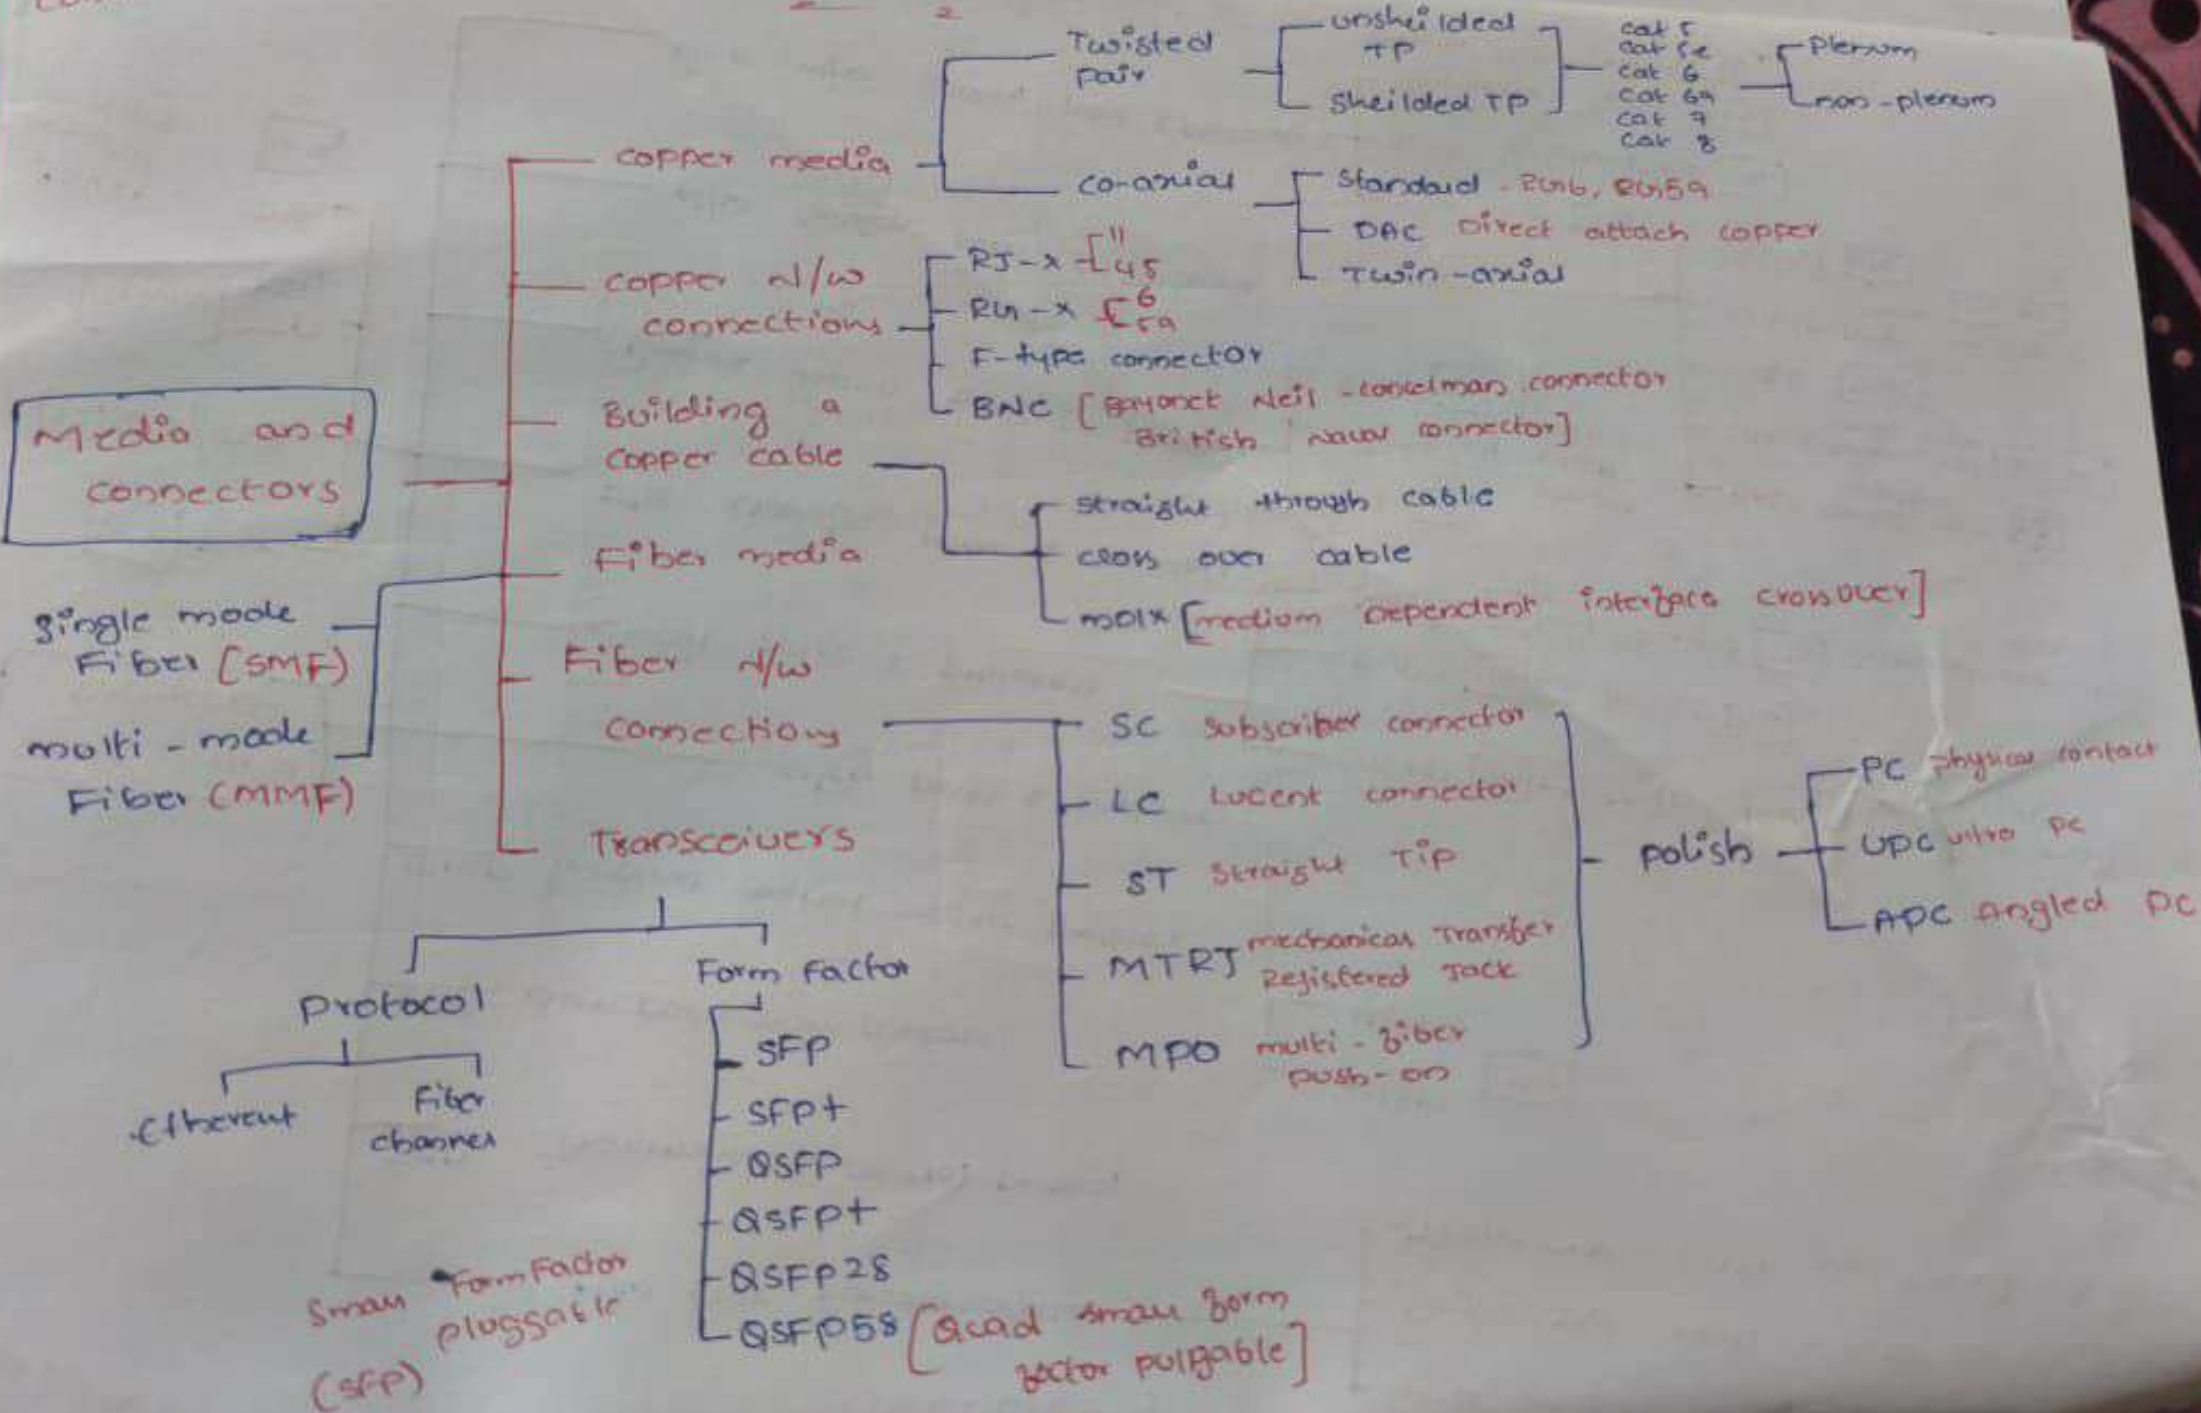 Twisted
pair
unsheilded
TP
sheilded TP
cat 5
cat 5e
cat 6
cat 6a
cat 7
cat 8
Plenum
non-plenum
copper media
co-axial
standard - RG6, RG59
DAC Direct attach copper
Twin-axial
copper N/w
connections
RJ-x [11
45
RG-x [6
59
F-type connector
BNC [Bayonet Neil-concelman connector
British Naval connector]
Building a
copper cable
straight through cable
cross over cable
MDIX [medium Dependent interface crossover]
Media and
connectors
Fiber media
single mode
Fiber (SMF)
multi-mode
Fiber (MMF)
Fiber N/w
connections
SC subscriber connector
LC Lucent connector
ST straight Tip
MTRJ mechanical Transfer
Registered Jack
MPO multi-fiber
push-on
polish
PC physical contact
UPC ultra PC
APC angled PC
Transceivers
Protocol
Etherent
Fiber
channel
Form Factor
SFP
SFP+
QSFP
QSFP+
QSFP28
QSFP58 [Quad small form
factor pulgable]
small Form Factor
pluggable
(SFP)